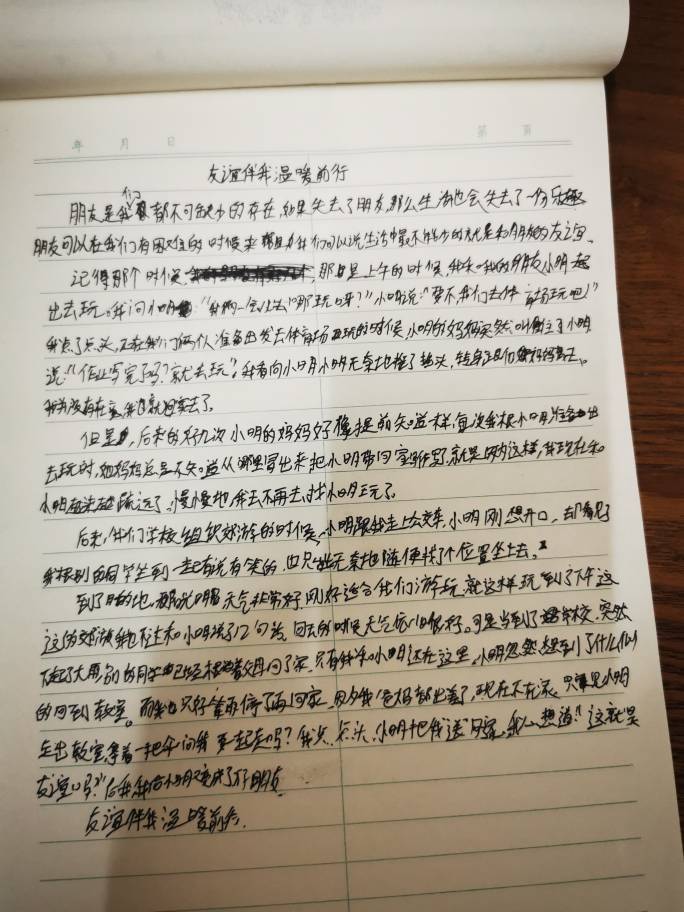 年 月 日 第 页
友谊伴我温暖前行
朋友是我们都不可缺少的存在,如果失去了朋友,那么生活也会失去了一份乐趣
朋友可以在我们有困难的时候来帮助我们可以说生活中最不能少的就是和朋友的友谊、
记得那个时候,那日是上午的时候,我和我的朋友小明
出去玩。我问小明:"我们一会儿去哪玩呀?"小明说:"要不,我们去体育场玩吧!"
我点了点头,正在我们俩人准备出发去体育场玩的时候,小明的妈妈突然叫住了小明
说:"作业写完了吗?就去玩"。我看向小明小明无奈地摇了摇头,
我
但是,后来的好几次小明的妈妈好像提前知道一样,每次我跟小明准备出
去玩时,她妈妈总是不知道从哪里冒出来把小明带回家写作业,就是因为这样,我现在和
小明越来越疏远了,慢慢地,我去不再去找小明玩了。
后来,我们学校组织郊游的时候,小明跟我走上公交车,小明刚想开口,却看见了
我和别的同学坐到一起有说有笑的,也只能无奈地随便找了个位置坐上去。
到了目的地,天气非常好,刚好适合我们游玩,就这样玩到了下午这
这次郊游我也没和小明说了几句话,回去的时候天气依旧很好。可是当到了学校,突然
下起了大雨,别的同学已经跟着父母回了家,只有我和小明还在这里,小明忽然想到了什么似
的回到教室。而我也只好等雨停了再回家,因为我爸妈都出差了,现在不在家,只见小明
走出教室拿着一把伞问我要一起走吗?我点点头,小明把我送回家,我心想道:"这就是
友谊吗?"后来我和小明又变成了好朋友
友谊伴我温暖前行.